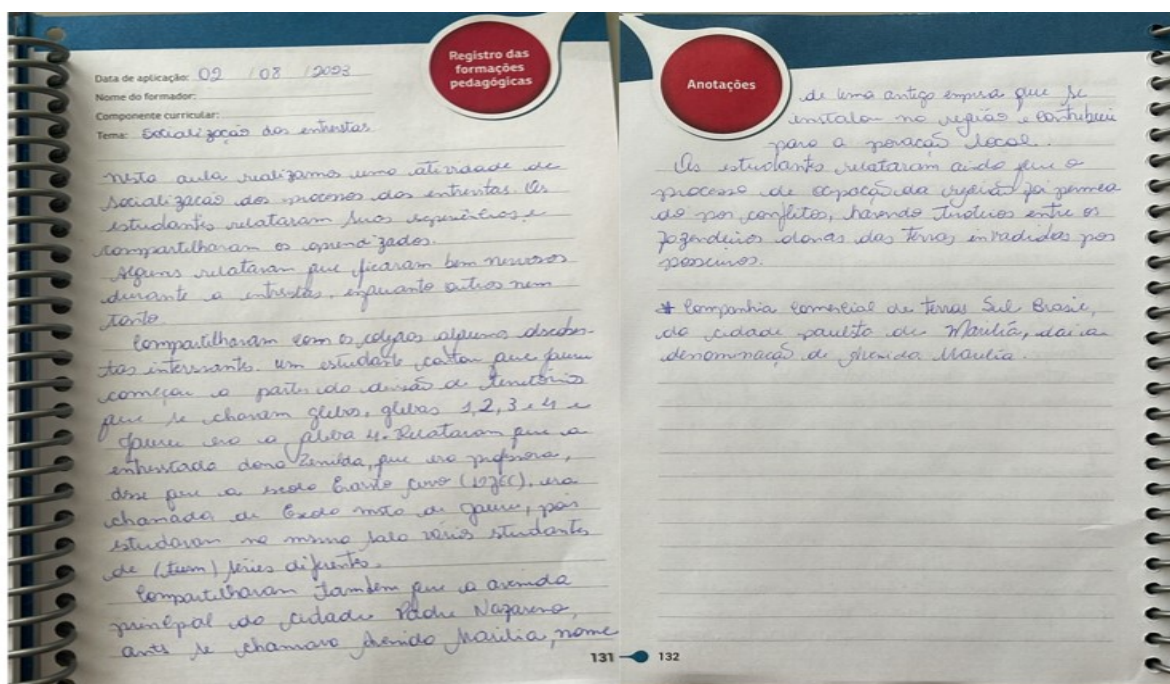 Registro das
formações
pedagógicas
Data de aplicação: 02 / 08 / 2023
Nome do formador:
Componente curricular:
Tema: Socialização das entrevistas
Nesta aula realizamos uma atividade de
socialização dos processos das entrevistas. Os
estudantes relataram suas experiências e
compartilharam os aprendizados.
Alguns relataram que ficaram bem nervosos
durante a entrevista, enquanto outros nem
tanto.
Compartilharam com os colegas algumas descober-
tas interessantes. Um estudante contou que
começou a partir da divisão de territórios
que se chavam glebas, glebas 1, 2, 3 e 4 e
era a gleba 4. Relataram que a
entrevistada dona Zenilda, que era professora,
disse que a escola era
chamada de mista de pois
estudavam na mesma sala vários estudantes
de séries diferentes.
Compartilharam também que a avenida
principal da cidade Padre Nazareno,
antes se chamava Avenida Marilia, nome
131
Anotações
de uma antiga empresa que se
instalou na região e contribuiu
para a local.
Os estudantes relataram ainda que o
processo de ocupação da região foi permea
do por conflitos, havendo tiroteios entre os
fazendeiros donos das terras invadidas por
posseiros.
* Companhia comercial de terras Sul Brasil,
da cidade paulista de Marília, daí a
denominação de Avenida Marilia.
132